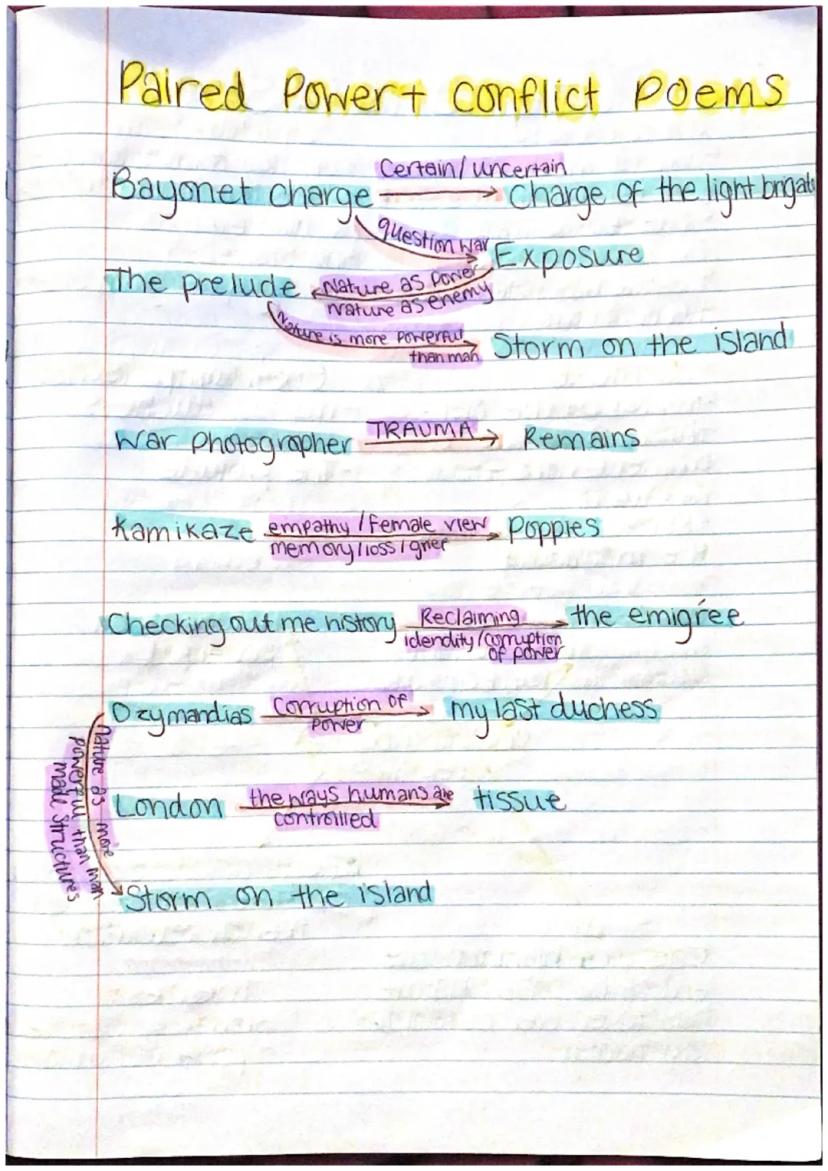 Paired Power + Conflict Poems
Certain / uncertain
Bayonet charge → Charge of the light brigade
question war
Exposure
The prelude
Nature as power
Nature as enemy
Nature is more powerful
than man
Storm on the island
War photographer TRAUMA → Remains
Kamikaze empathy / female view → Poppies
memory / loss / grief
Checking out me history Reclaiming → the emigrée
idendity / corruption
of power
Ozymandias Corruption of → my last duchess
power
nature as more
powerful than man
made structures
London the ways humans are → tissue
controlled
Storm on the island